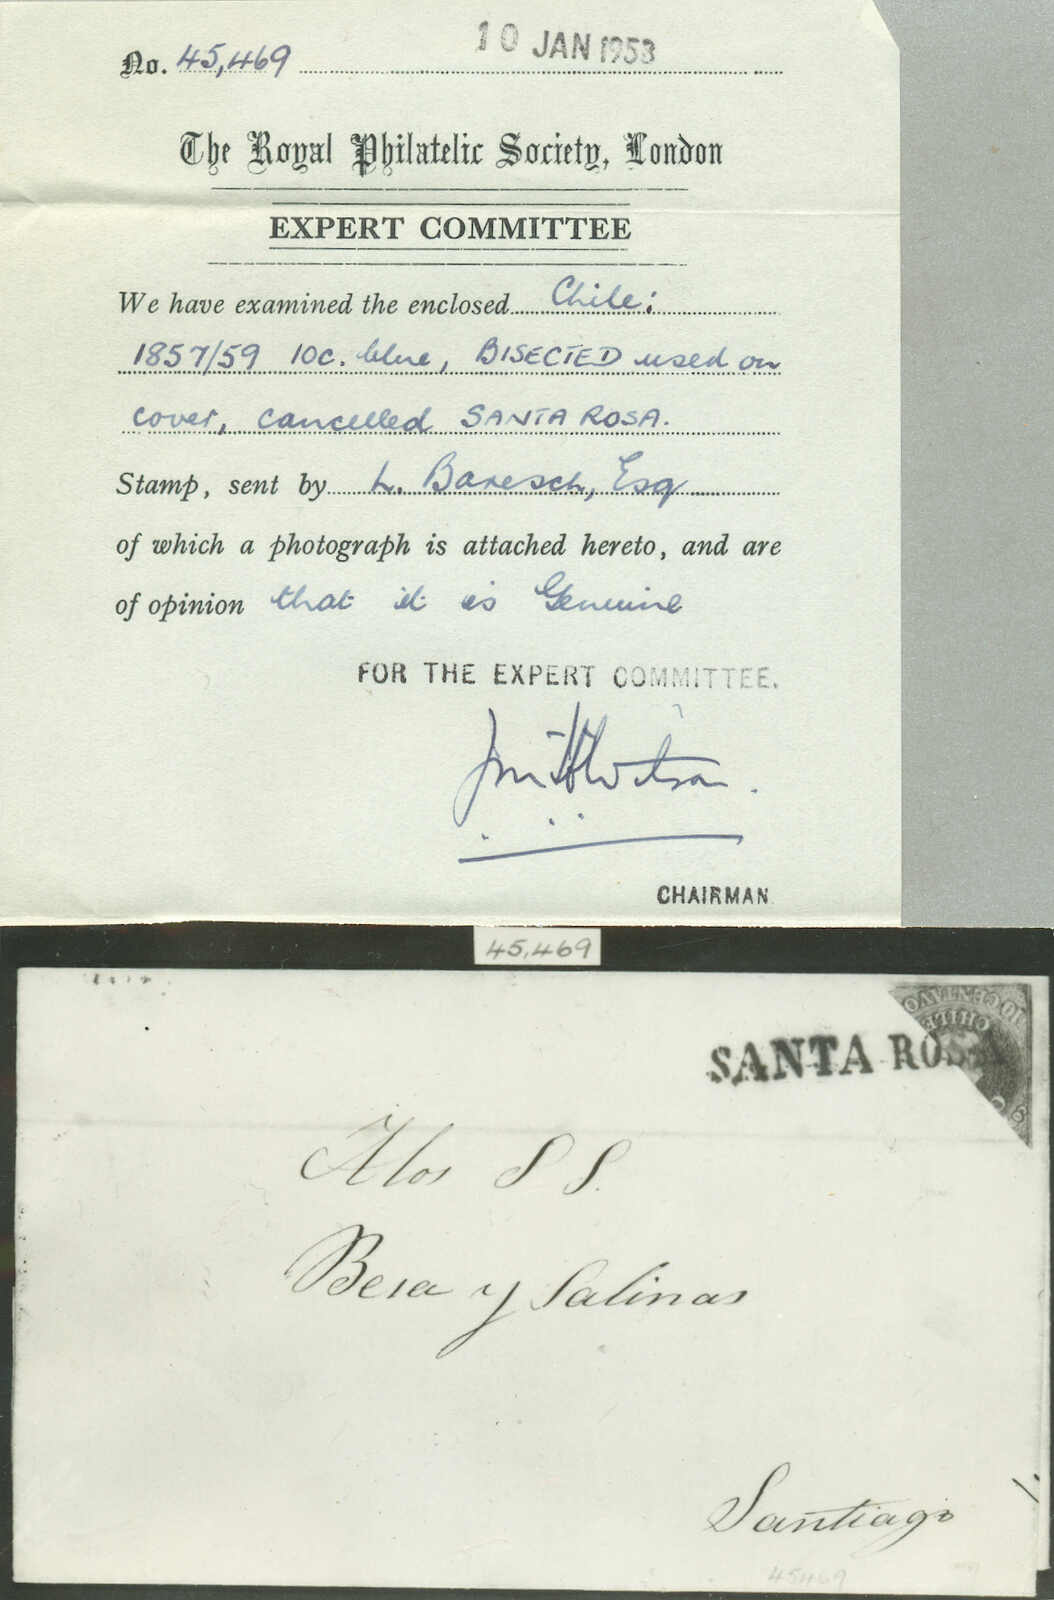 No. 45,469
10 JAN 1958
The Royal Philatelic Society, London
EXPERT COMMITTEE
We have examined the enclosed Chile:
1857/59 10c. blue, BISECTED used on
cover, cancelled SANTA ROSA.
Stamp, sent by L. Baresch, Esq
of which a photograph is attached hereto, and are
of opinion that it is Genuine
FOR THE EXPERT COMMITTEE.
CHAIRMAN
45,469
10 CENTAVO
CHILE
SANTA ROSA
Alos S S.
Besa y Salinas
Santiago
45469